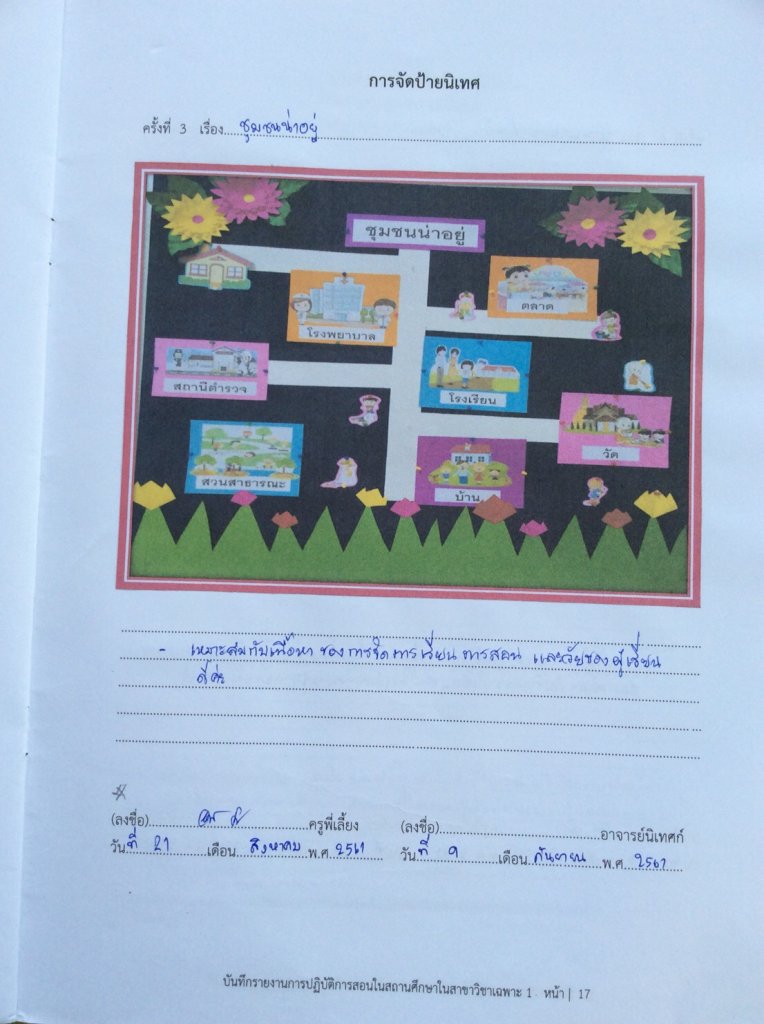 การจัดป้ายนิเทศ
ครั้งที่ 3 เรื่อง ชุมชนน่าอยู่
ชุมชนน่าอยู่
โรงพยาบาล
ตลาด
สถานีตำรวจ
โรงเรียน
สวนสาธารณะ
บ้าน
วัด
- เหมาะสมกับเนื้อหา ของการจัดการเรียนการสอน และวัยของผู้เรียน
ดีค่ะ
(ลงชื่อ) ครูพี่เลี้ยง (ลงชื่อ) อาจารย์นิเทศก์
วันที่ 21 เดือน สิงหาคม พ.ศ. 2561 วันที่ 9 เดือน กันยายน พ.ศ. 2561
บันทึกรายงานการปฏิบัติการสอนในสถานศึกษาในสาขาวิชาเฉพาะ 1 หน้า | 17